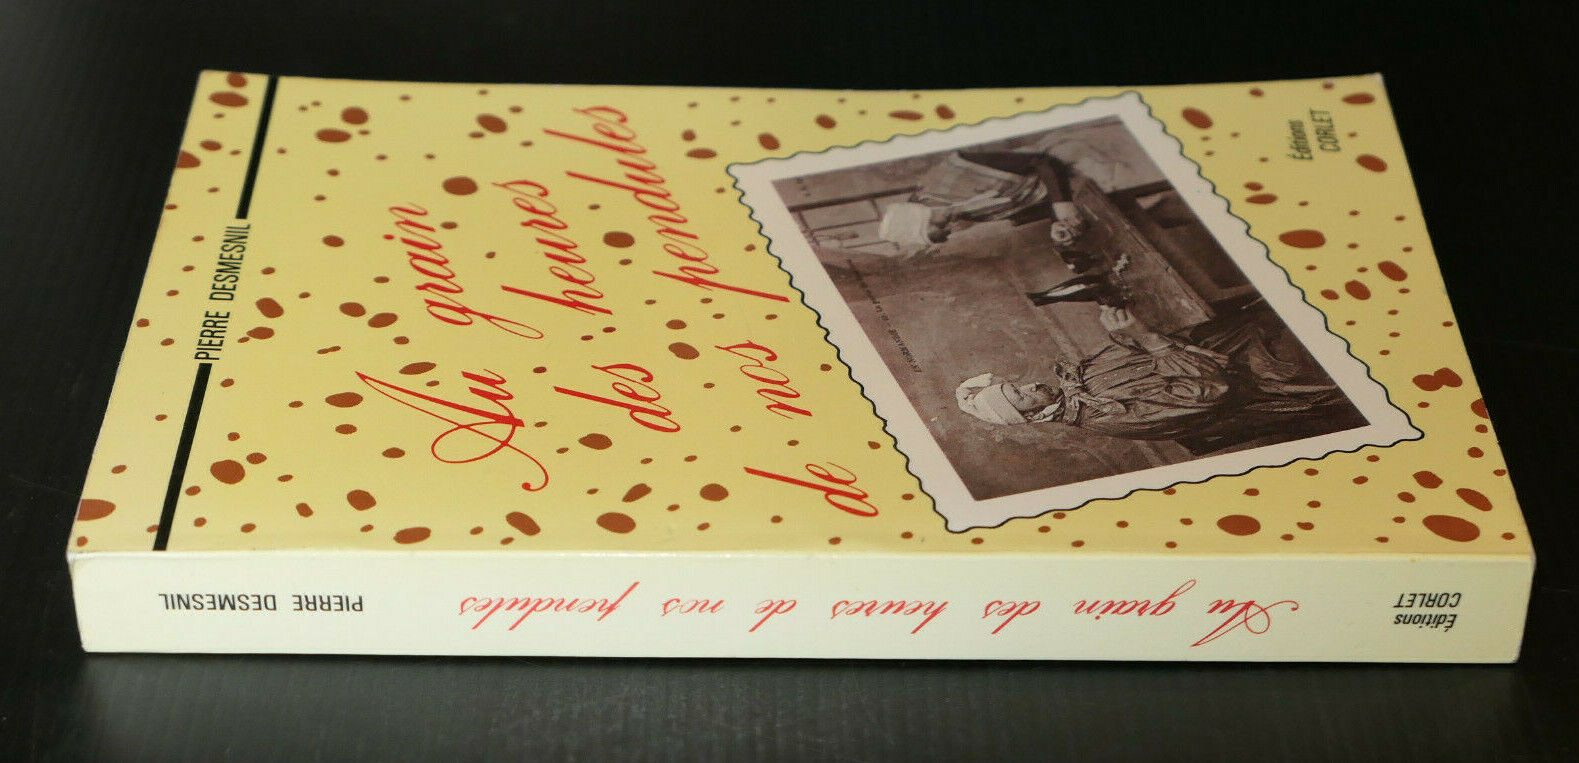 PIERRE DESMESNIL
Au grain
des heures
de nos pendules
Éditions
CORLET
PIERRE DESMESNIL
Au grain des heures de nos pendules
Éditions
CORLET